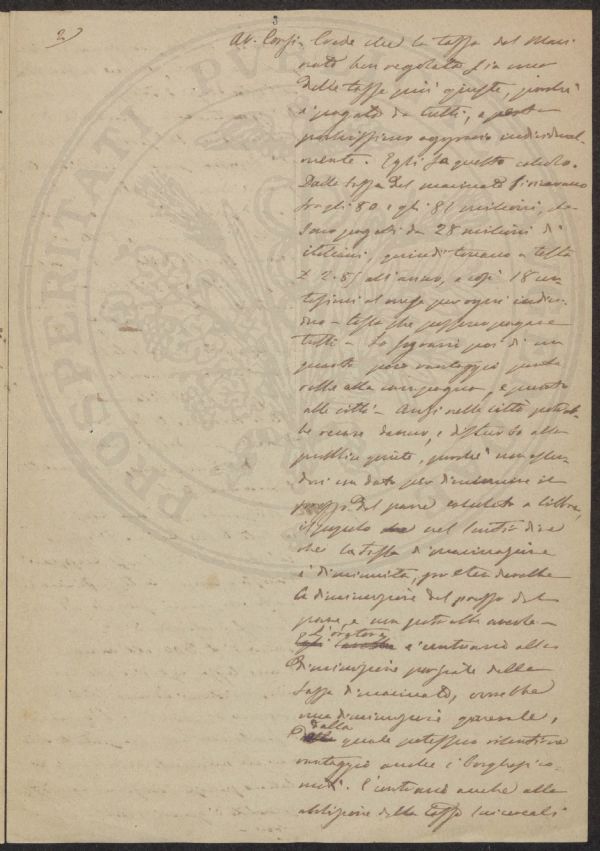 3
2)
Av. Corsi - Crede che la tassa del Maci-
nato ben regolata sia una
delle tasse più giuste, perchè
è pagata da tutti, e
pochissimo aggravio individual-
mente. Egli fa questo calcolo.
Dalla tassa del macinato si ricavano
fra gli 80 e gli 81 milioni, che
sono pagati da 28 milioni di
italiani, quindi toccano a testa
£ 2.85 all'anno, e così 18 cen-
tesimi al mese per ogni indivi-
duo - tassa che possono pagare
tutti - Lo sgravio poi di un
quarto poco vantaggio porte-
rebbe alla campagna, e punto
alle città - Anzi nelle città potreb-
be recare danno, e disturbo alla
pubblica quiete, perchè non essen-
dovi un dato per diminuire il
prezzo del pane calcolato a libbra,
il popolo nel sentir dire
che la tassa di macinazione
è diminuita, pretenderebbe
la diminuzione del prezzo del
pane, e non potrebbe averla -
L'oratore è contrario alla
diminuzione parziale della
tassa di macinato, vorrebbe
una diminuzione generale,
dalla quale potessero risentire
vantaggio anche i borghesi
. È contrario anche alla
abolizione della tassa sui cereali
PROSPERITATI PUBL